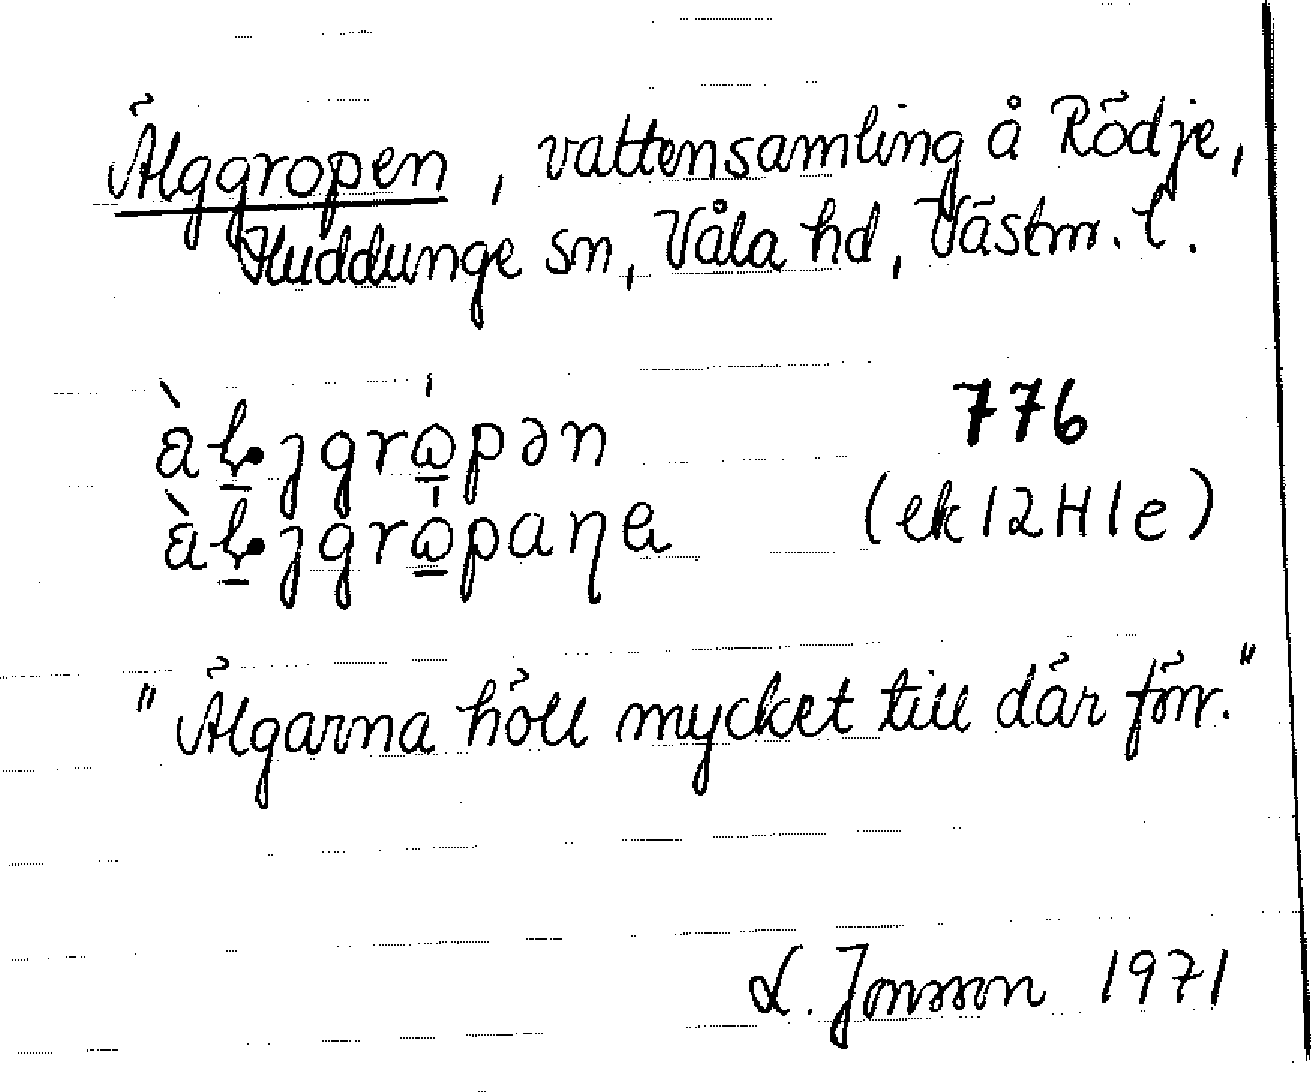 Älggropen, vattensamling å Rödje,
Huddunge sn, Våla hd, Västm. l.
776
(ek 12 H 1e)
"Älgarna höll mycket till där förr."
L. Jonsson 1971